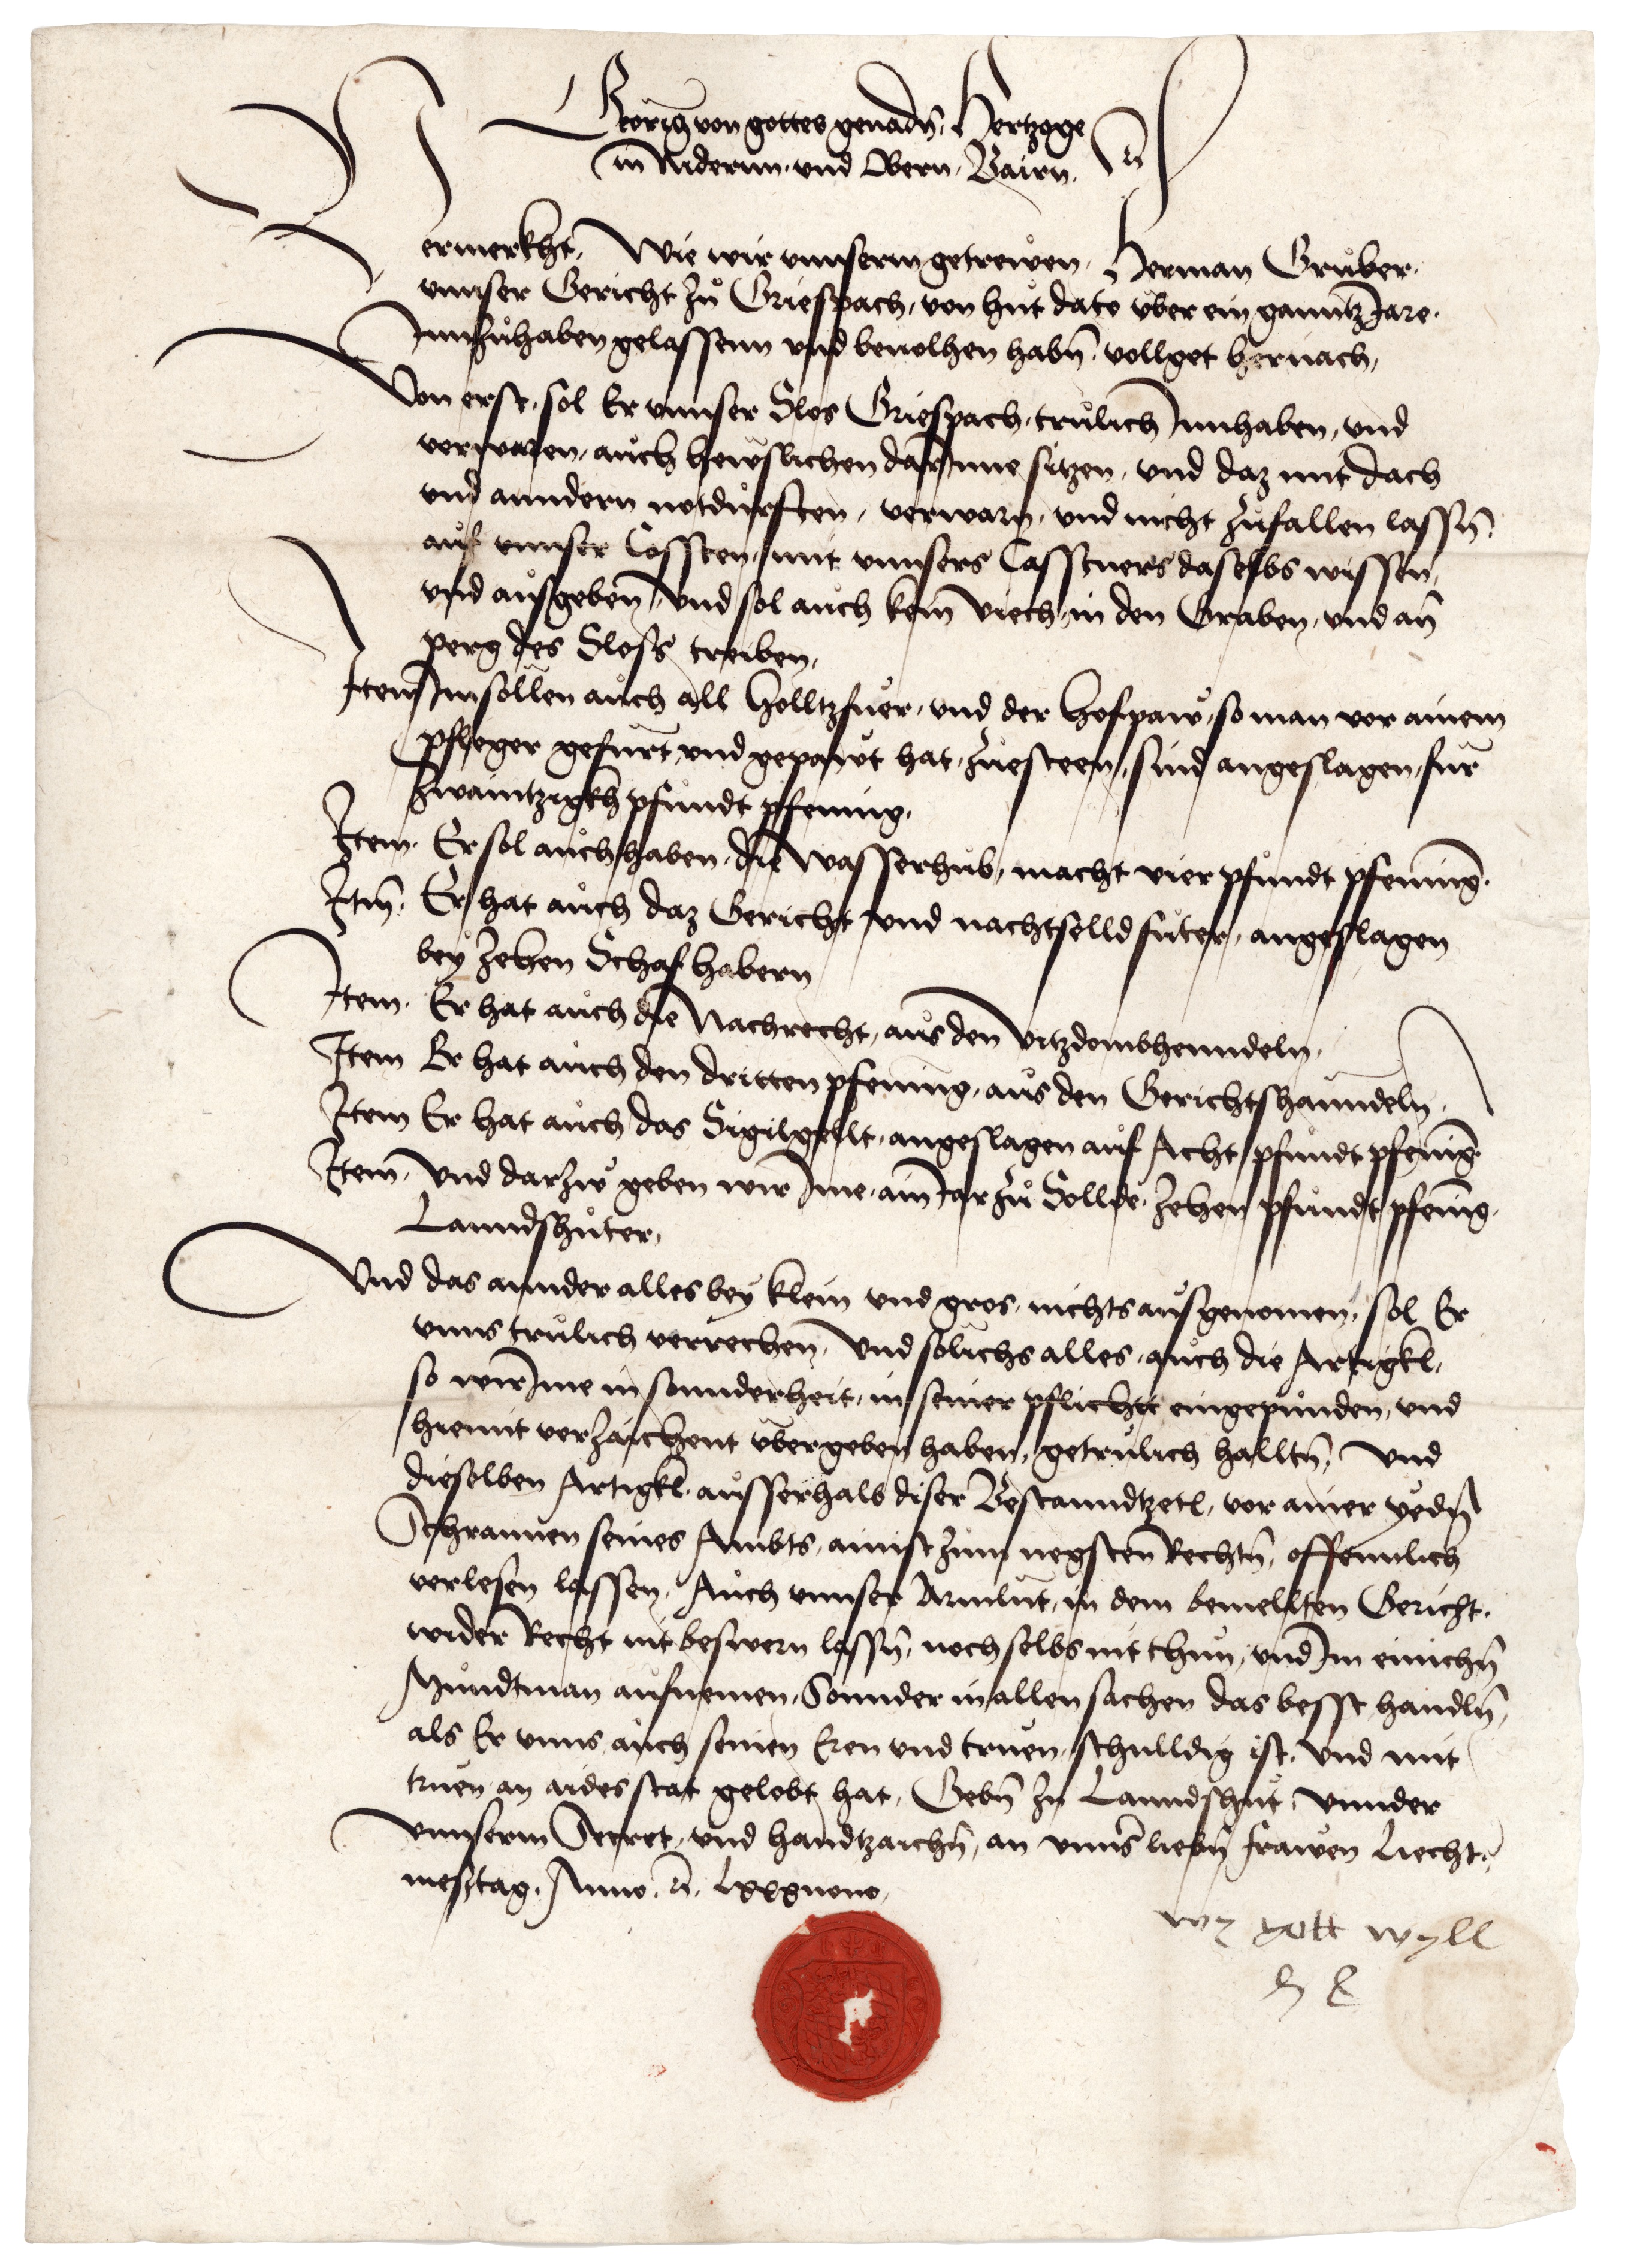 Georig von gottes genadn̄ Hertzoge
in Nidernn und Obern Bairn. ꝛc
Vermerkht, Wie wir unnserm getrewen, Herman Gruͦber.
unnser Gericht zuͦ Griespach, von huͤt dato uͤber ein ganntz Jare.
Innzuͦhaben gelassenn und bevolhen habn̄, vollget hernach,
Von erst, sol Er unnser Slos Griespach, truͤlich Innhaben, und
verwaren, auch hewslichen darInne sitzen, und daz mit dach
und anndern notdurften, verwarn, und nicht zuͦfallen lassn̄,
auf unnser Cossten, mit unnsers Casstners daselbs wissen,
und ausgeben, Und sol auch kein viech, in den Graben, und an̄
perg des Sloss treiben,
Item Im soͤllen auch all holltzfuͤr, und der hofpaw, so man vor ainem
pfleger gefuͤrt, und gepawt hat, zuͦesteen, sind angeslagen, fuͤr
zwaintzigkh pfundt pfening,
Item. Er sol auch haben, die Wasserhub, macht vier pfundt pfening.
Itm̄. Er hat auch daz Gericht und nachtselld fuͦter, angeslagen
bey zehen Schaf habern
Item. Er hat auch die Nachrecht, aus den Vitzdombhenndeln,
Item Er hat auch den dritten pfening, aus den Gerichtshanndeln,
Item Er hat auch das Sigilgellt, angeslagen auf Acht pfundt pfening
Item, Und darzuͦ geben wir Ime, ain Jar zuͦ Sollde, zehen pfundt pfening.
Lanndshuͦter,
Und das annder alles bey klein und gros, nichts ausgenomen, sol Er
unns truͤlich verrechen, Und soͤlichs alles, auch die Artigkl,
so wir Ime in sonnderheit, in seiner pflicht eingepunden, und
hiemit verzaichent uͤbergeben haben, getruͤlich halltn̄, Und
dieselben Artigkl, ausserhalb diser Bestanndtzetl, vor ainer yedn̄
Schrannen seines Ambts, ainist zum negsten Rechtn̄, offennlich
verlesen lassen, Auch unnser Armluͤt, in dem bemellten Gericht.
wider Recht nit beswern lassn̄, noch selbs nit thun, und Im einichn̄
Mundtman aufnemen, Sonnder in allen sachen das besst handln̄,
als Er unns auch seinen Eren und truͤen, schulldig ist, und mit
truͤen an aides stat gelobt hat, Gebn̄ zu Lanndshuͦt, Unnder
unnserm Secret, und handtzaichn̄, an unns̄ liebn̄ frawen Liecht-
messtag, Anno. ꝛc. Lxxxnono,
wy gott wyll